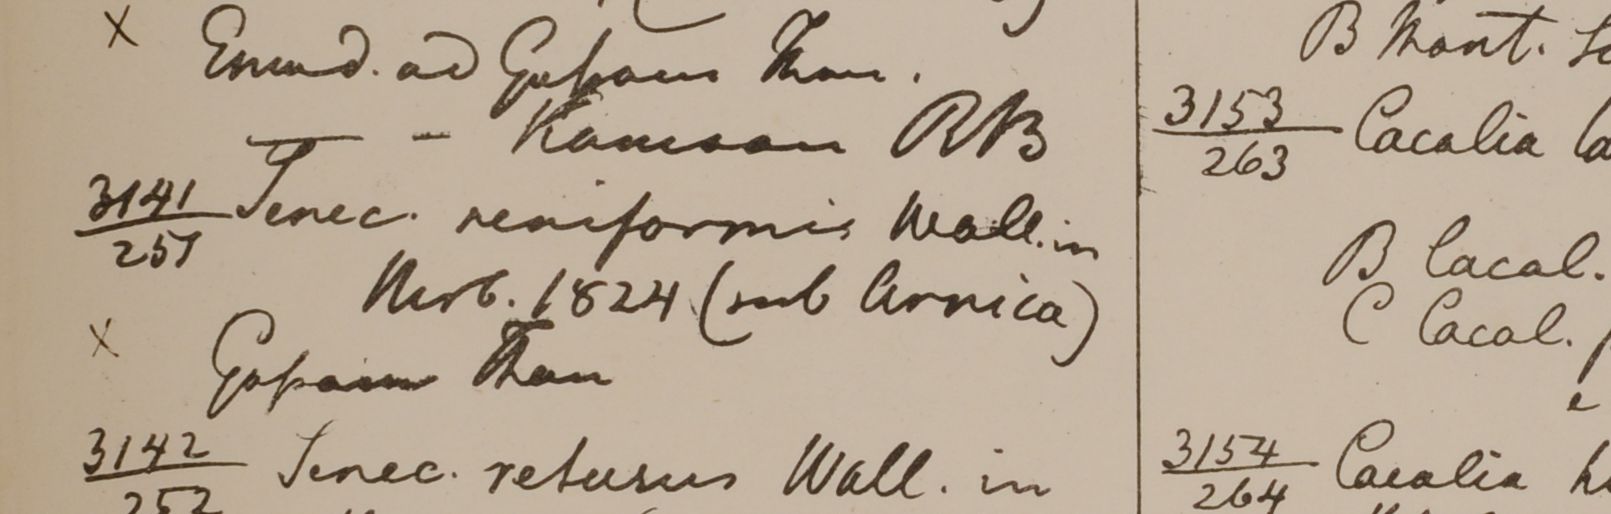 x Emod. ad Gosain Than.
— – Kamaon RB
3141/251 Senec. reniformis Wall. in
Herb. 1824 (sub Arnica)
x Gosain Than
3142/252 Senec. retusus Wall. in
B Mont.
3153/263 Cacalia
B Cacal.
C Cacal.
3154/264 Cacalia